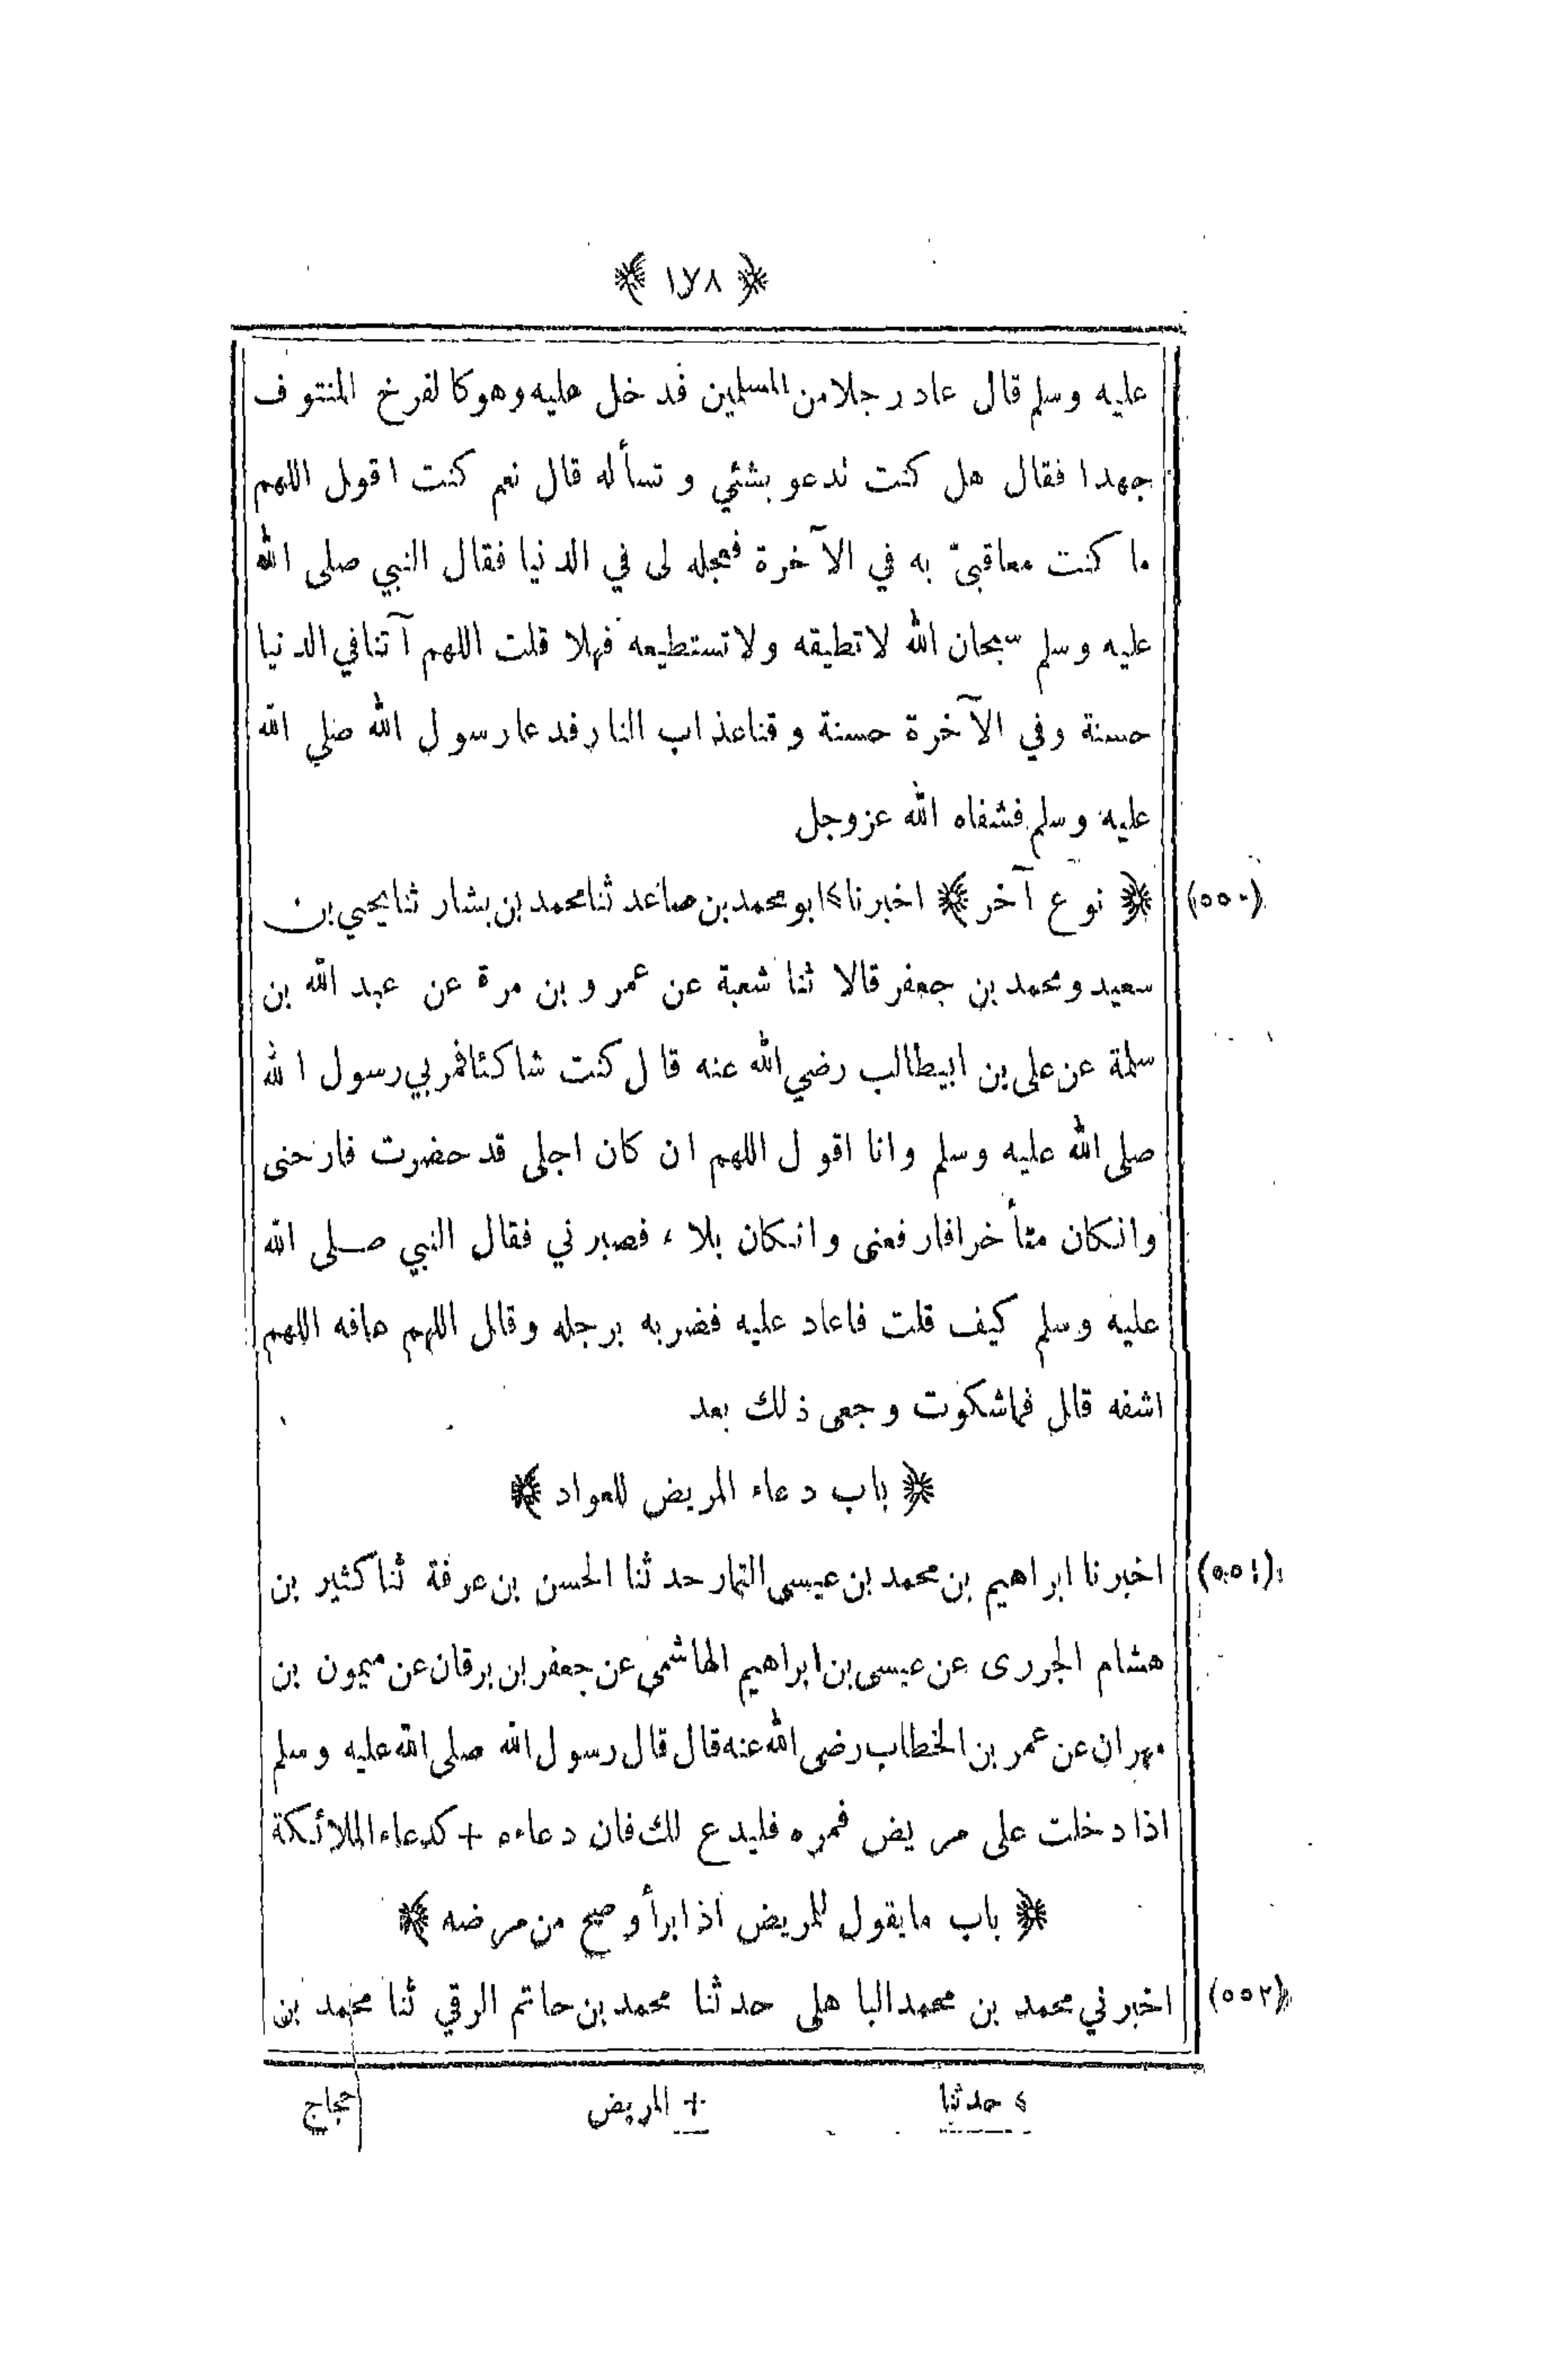 ﴿ ١٧٨ ﴾
عليه وسلم قال عاد رجلا من المسلمين فدخل عليه وهو كالفرخ المنتوف
جهدا فقال هل كنت تدعو بشئي و تسأله قال نعم كنت اقول اللهم
ما كنت معاقبىّ به في الآخرة فعجله لى في الدنيا فقال النبي صلى الله
عليه وسلم سبحان الله لا تطيقه ولا تستطيعه فهلا قلت اللهم آتنا في الدنيا
حسنة وفي الآخرة حسنة وقنا عذاب النار فدعا رسول الله صلي الله
عليه وسلم فشفاه الله عزوجل
(٥٥٠) ﴿ نوع آخر ﴾ اخبرنا ٤ ابو محمد بن صاعد ثنا محمد بن بشار ثنا يحيي بن
سعيد ومحمد بن جعفر قالا ثنا شعبة عن عمرو بن مرة عن عبد الله بن
سلمة عن على بن ابيطالب رضي الله عنه قال كنت شاكئا فمر بي رسول الله
صلى الله عليه وسلم وانا اقول اللهم ان كان اجلى قد حضرت فارحنى
وانكان متأخرا فارفعنى وانكان بلاء فصبرني فقال النبي صلى الله
عليه وسلم كيف قلت فاعاد عليه فضربه برجله وقال اللهم عافه اللهم
اشفه قال فما شكوت وجعى ذلك بعد
﴿ باب دعاء المريض للعواد ﴾
(٥٥١) اخبرنا ابراهيم بن محمد بن عيسى التمار حدثنا الحسن بن عرفة ثنا كثير بن
هشام الجررى عن عيسى بن ابراهيم الهاشمى عن جعفر بن برقان عن ميمون بن
مهران عن عمر بن الخطاب رضى الله عنه قال قال رسول الله صلى الله عليه وسلم
اذا دخلت على مريض فمره فليدع لك فان دعاءه + كدعاء الملائكة
﴿ باب ما يقول للمريض اذا ابرأ وصح من مرضه ﴾
(٥٥٢) اخبرني محمد بن محمد الباهلى حدثنا محمد بن حاتم الرقي ثنا محمد بن
٤ حدثنا + المريض حجاج